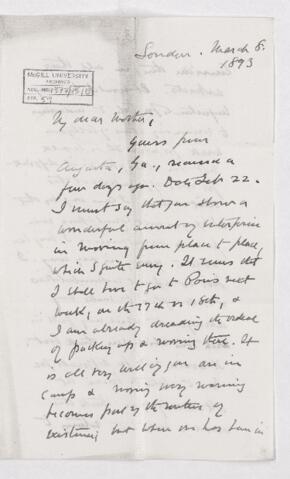 London. March 8.
1893
McGILL UNIVERSITY
ARCHIVES
ACC. NO.
REF. 54
My dear Mother,
Yours from
Augusta, Ga., received a
few days ago. Date Feb 22.
I must say that you show a
wonderful amount of enterprise
in moving from place to place,
which I quite envy. It seems that
I shall have to go to Paris next
week, on the 17th or 18th, &
I am already dreading the ordeal
of packing up & moving there. It
is all very well if you are in
camp & moving every morning
becomes part of the routine of
existence; but when one has been in